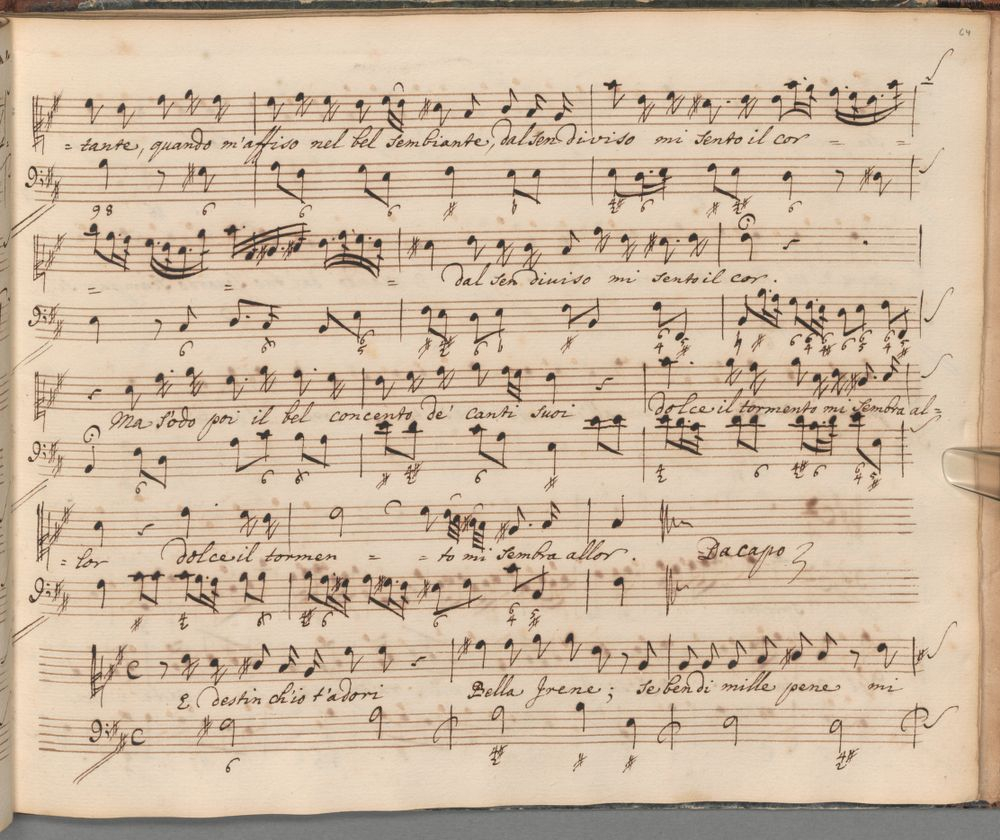 64
= tante, quando m'affiso nel bel sembiante, dal sen diviso mi sento il cor = =
9 8 6 6 6 6 6
= = = dal sen diviso mi sento il cor.
Ma s'odo poi il bel concento de' canti suoi dolce il tormento mi sembra al=
=lor dolce il tormen = = to mi sembra allor. Da capo
E destin ch'io t'adori Bella Irene; se ben di mille pene mi